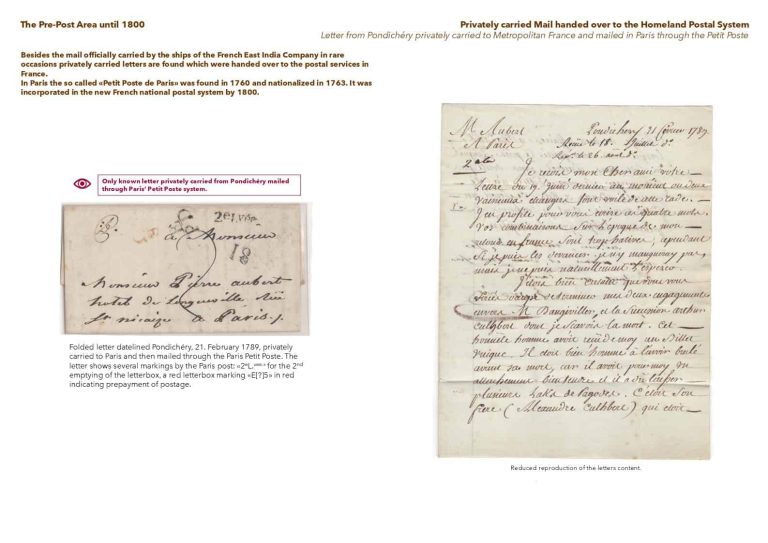 The Pre-Post Area until 1800
Privately carried Mail handed over to the Homeland Postal System
Letter from Pondichéry privately carried to Metropolitan France and mailed in Paris through the Petit Poste
Besides the mail officially carried by the ships of the French East India Company in rare
occasions privately carried letters are found which were handed over to the postal services in
France.
In Paris the so called «Petit Poste de Paris» was found in 1760 and nationalized in 1763. It was
incorporated in the new French national postal system by 1800.
Only known letter privately carried from Pondichéry mailed
through Paris' Petit Poste system.
a Monsieur
18
Monsieur Pierre aubert
hotel de longueville Rüe
St nicaise a Paris
Folded letter datelined Pondichéry, 21. February 1789, privately
carried to Paris and then mailed through the Paris Petit Poste. The
letter shows several markings by the Paris post: for the 2nd
emptying of the letterbox, a red letterbox marking «E[?]5» in red
indicating prepayment of postage.
Mr Aubert
A Paris
Pondichery 21 fevrier 1789
2ata
Je reçois mon Cher ami votre
Lettre du 19 Juin dernier au moment ou deux
vaisseaux etrangers font voile de cette rade.
J'en profite pour vous écrire quatre mots.
Vos combinaisons Sur l'epoque de mon
retour en france Sont trop hatives, cependant
Si je puis les devancer je n'y manqueray pas,
mais je ne puis naturellement l'esperer.
J'etois bien
mes deux engagements
envers M. Dangivillers, et la Succession arthur
Cuthbert dont je Scavois la mort. Cet
honnete homme avoit de moy un Billet
unique. Il etoit bien homme à l'avoir brulé
avant Sa mort, car il avoit pour moy un
attachement bien tendre et il a dû laisser
plusieurs Laks de Pagodes. C'etoit Son
frere (Alexandre Cuthbert) qui etoit
Reduced reproduction of the letters content.